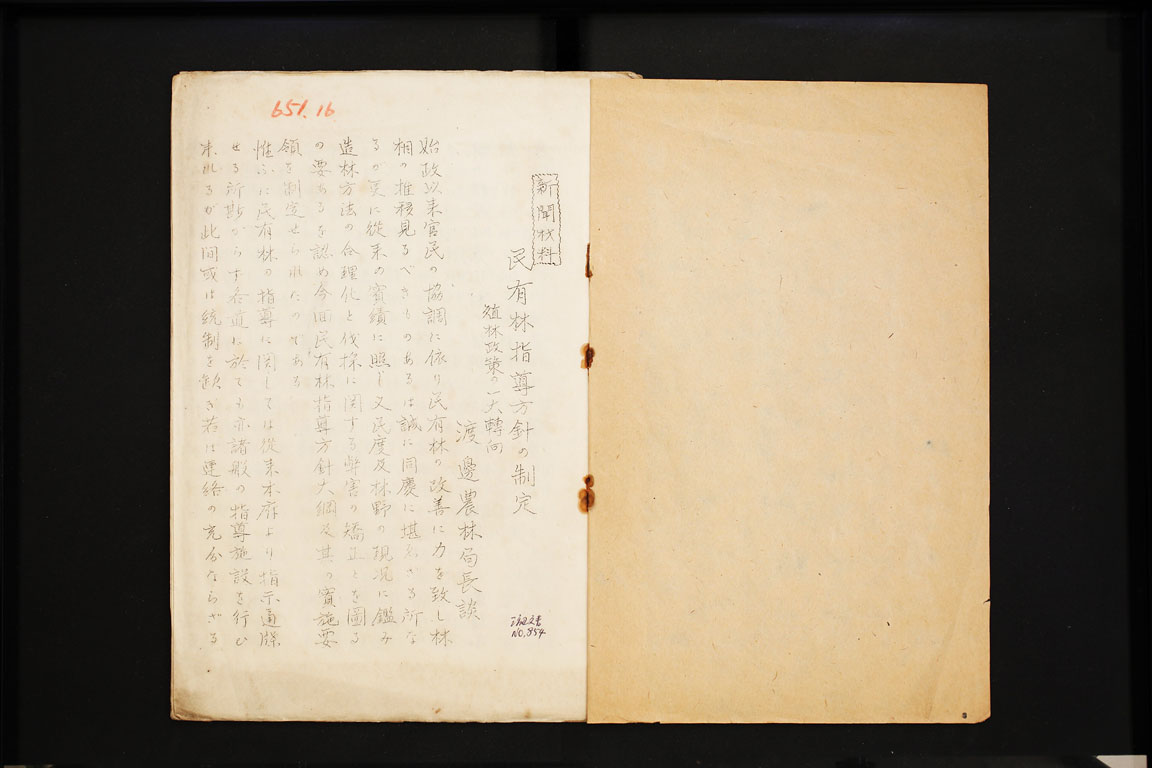 651.16
新聞材料
民有林指導方針の制定
殖林政策の一大轉向
渡邊農林局長談
始政以来官民の協調に依り民有林の改善に力を致し林
相の推移見るべきものあるは誠に同慶に堪えざる所な
るが更に従来の實績に照し又民度及林野の現況に鑑み
造林方法の合理化と伐採に関する弊害の矯正とを圖る
の要あるを認め今回民有林指導方針大綱及其の實施要
領を制定せられたのである
惟ふに民有林の指導に関しては従来本府より指示通牒
せる所尠からず各道に於ても亦諸般の指導施設を行ひ
来れるが此間或は統制を欠き若は連絡の充分ならざる
NO.854